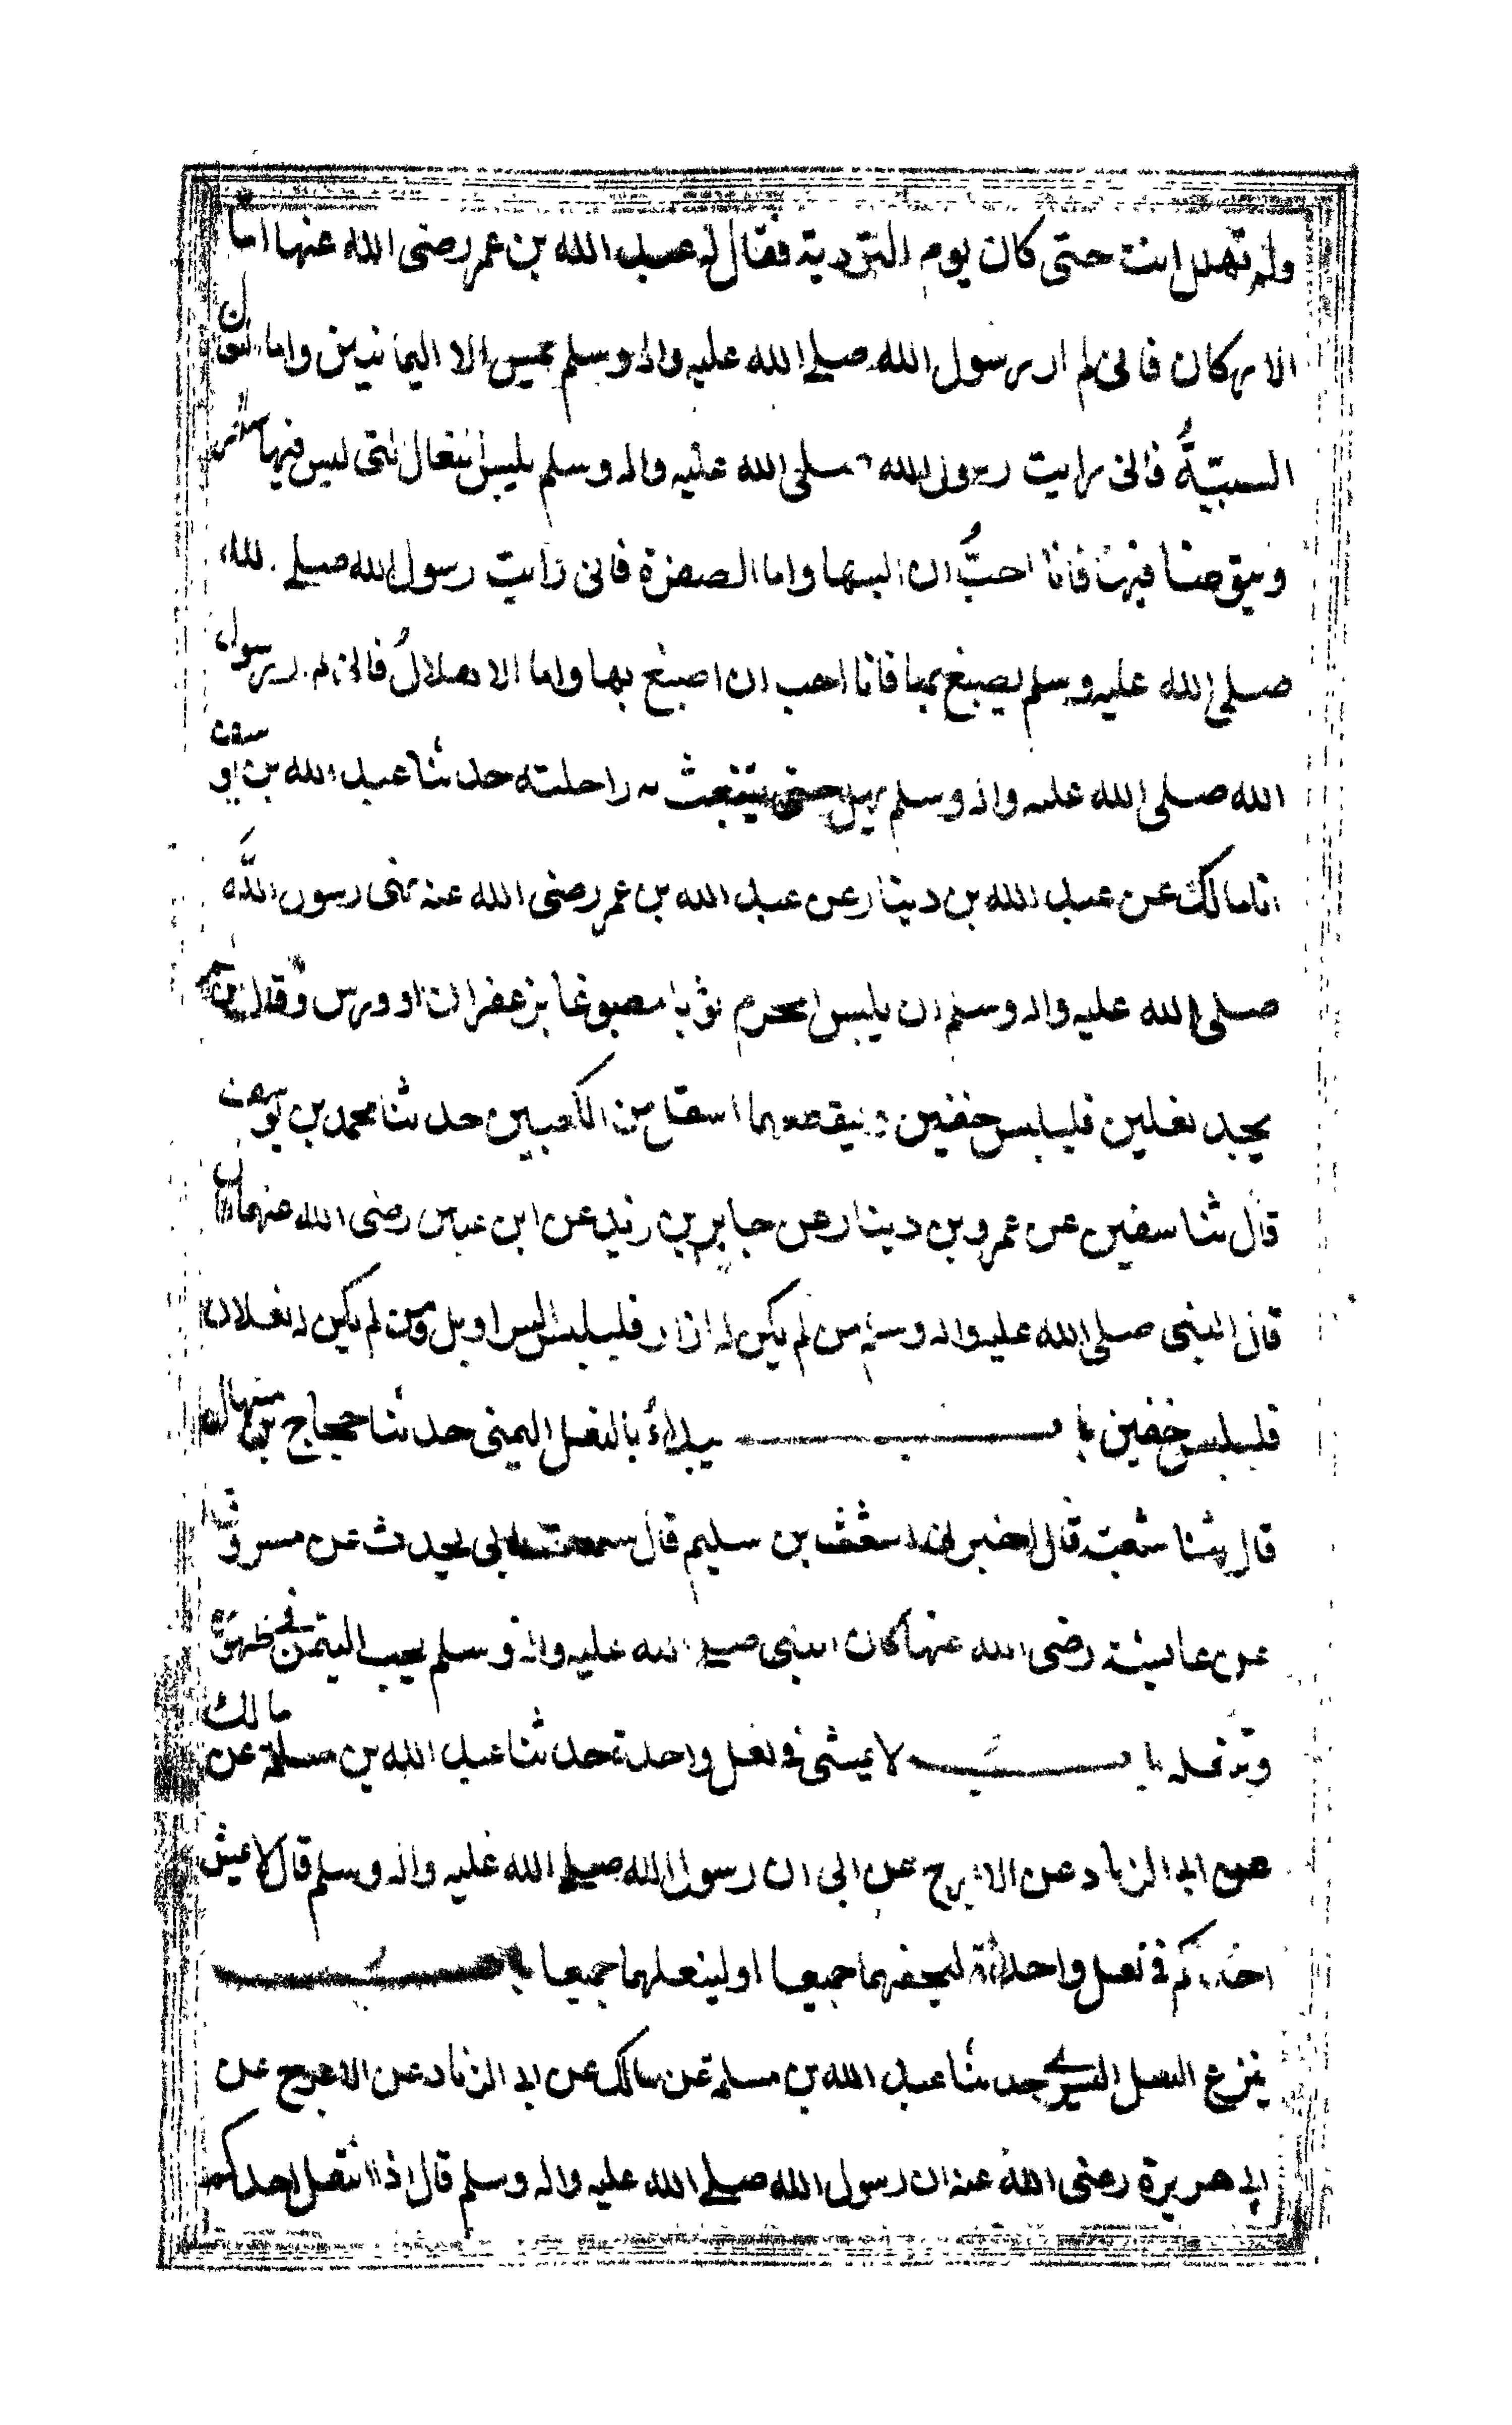 ولم تهلل انت حتى كان يوم التروية فقال له عبد الله بن عمر رضى الله عنهما اما
الاركان فانى لم ار رسول الله صلى الله عليه واله وسلم يمس الا اليمانيين واما النعال
السبتيةُ فانى رايت رسول الله صلى الله عليه واله وسلم يلبس النعال التى ليس فيها شعر
ويتوضا فيها فانا احبُّ ان البسها واما الصفرة فانى رايت رسول الله صلى الله
صلى الله عليه وسلم يصبغ بها فانا احب ان اصبغ بها واما الاهلالُ فانى لم ار رسول
الله صلى الله عليه واله وسلم يهل حتى تنبعث به راحلته حدثنا عبد الله بن يوسف
انا مالك عن عبد الله بن دينار عن عبد الله بن عمر رضى الله عنه نهى رسول الله
صلى الله عليه واله وسلم ان يلبس المحرم ثوبا مصبوغا بزعفران او ورس وقال من لم
يجد نعلين فليلبس خفين وليقطعهما اسفل من الكعبين حدثنا محمد بن يوسف
قال ثنا سفين عن عمرو بن دينار عن جابر بن زيد عن ابن عباس رضى الله عنهما قال
قال النبى صلى الله عليه واله وسلم من لم يكن له ازار فليلبس السراويل ومن لم يكن له نعلان
فليلبس خفين باب يبدأ بالنعل اليمنى حدثنا حجاج بن منهال
قال ثنا شعبة قال اخبرنى اشعث بن سليم قال سمعت ابى يحدث عن مسروق
عن عايشة رضى الله عنها كان النبى صلى الله عليه واله وسلم يحب التيمن فى طهوره
وتنعله باب لا يمشى فى نعل واحدة حدثنا عبد الله بن مسلمة عن مالك
عن ابى الزناد عن الاعرج عن ابى ان رسول الله صلى الله عليه واله وسلم قال لا يمش
احدكم فى نعل واحدة ليحفهما جميعا او لينعلهما جميعا باب
ينزع النعل اليسرى حدثنا عبد الله بن مسلمة عن مالك عن ابى الزناد عن الاعرج عن
ابى هريرة رضى الله عنه ان رسول الله صلى الله عليه واله وسلم قال اذا انتعل احدكم